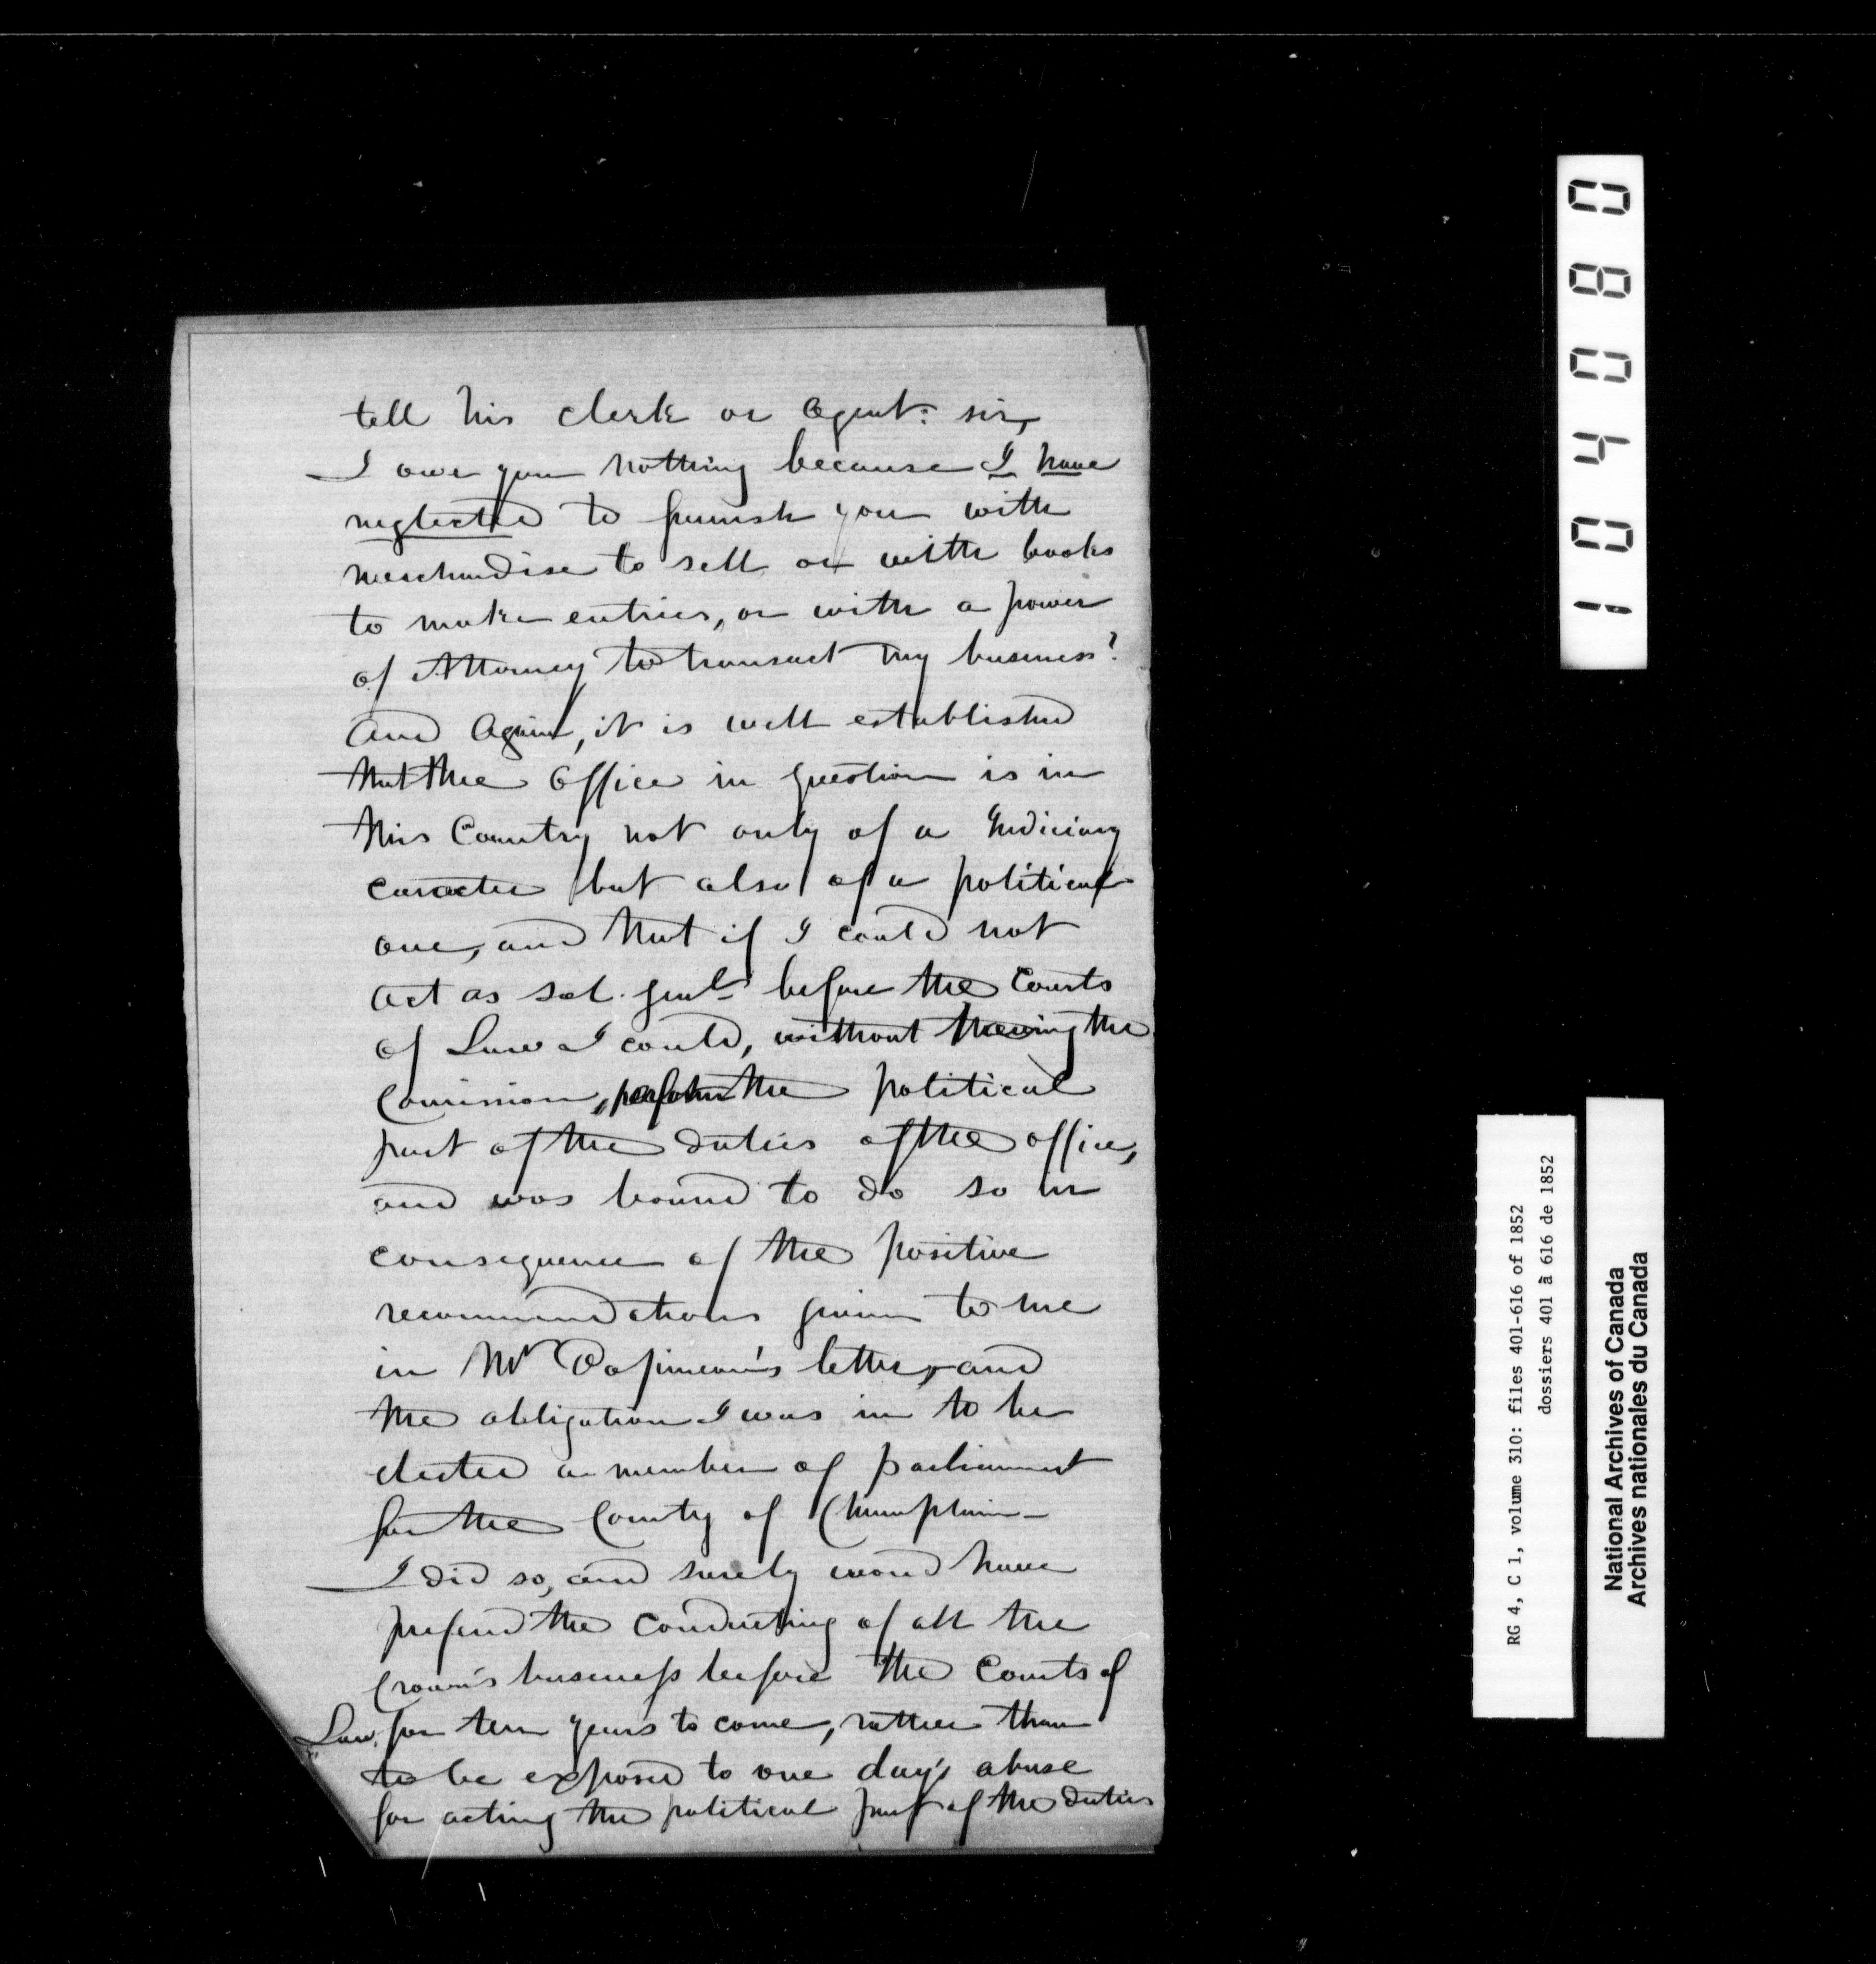 tell his clerk or agent: sir,
I owe you nothing because I have
neglected to furnish you with
merchandise to sell or with books
to make entries, or with a power
of Attorney to transact my business?
And Again, it is well established
that the Office in question is in
this Country not only of a Judiciary
caracter but also of a political
one, and that if I could not
act as Sol. Genl before the Courts
of Law I could, without the
Comission, perform the political
part of the duties of the office,
and was bound to do so in
consequence of the positive
recommendations given to me
in Mr Papineau's letter, and
the obligation I was in to be
elected a member of parliament
for the County of Champlain —
I did so, and surely would have
prefered the conducting of all the
Crown's business before the Courts of
Law, for ten years to come, rather than
to be exposed to one day's abuse
for acting the political part of the duties
104080
RG 4, C 1, volume 310: files 401-616 of 1852
dossiers 401 à 616 de 1852
National Archives of Canada
Archives nationales du Canada